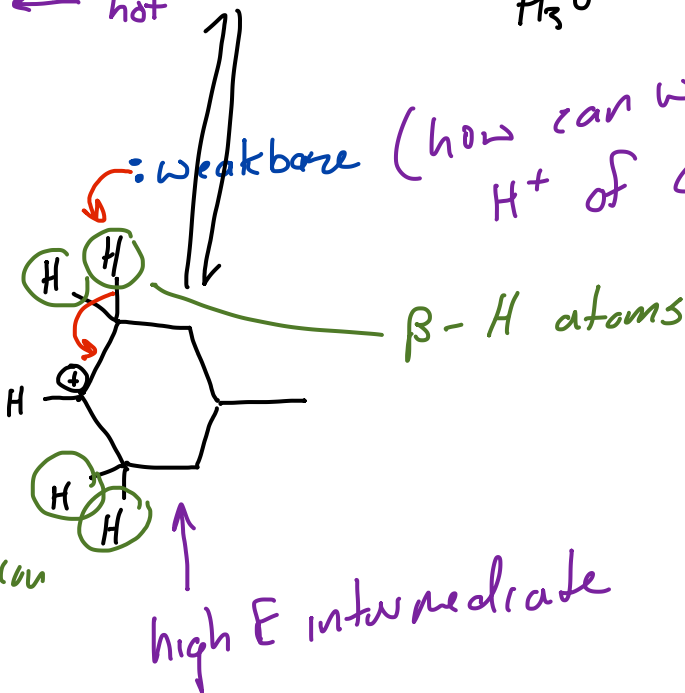 hot
H₃O
: weak base
(how can w
H⁺ of
H H
β - H atoms
⊕
H
H
H
high E intermediate